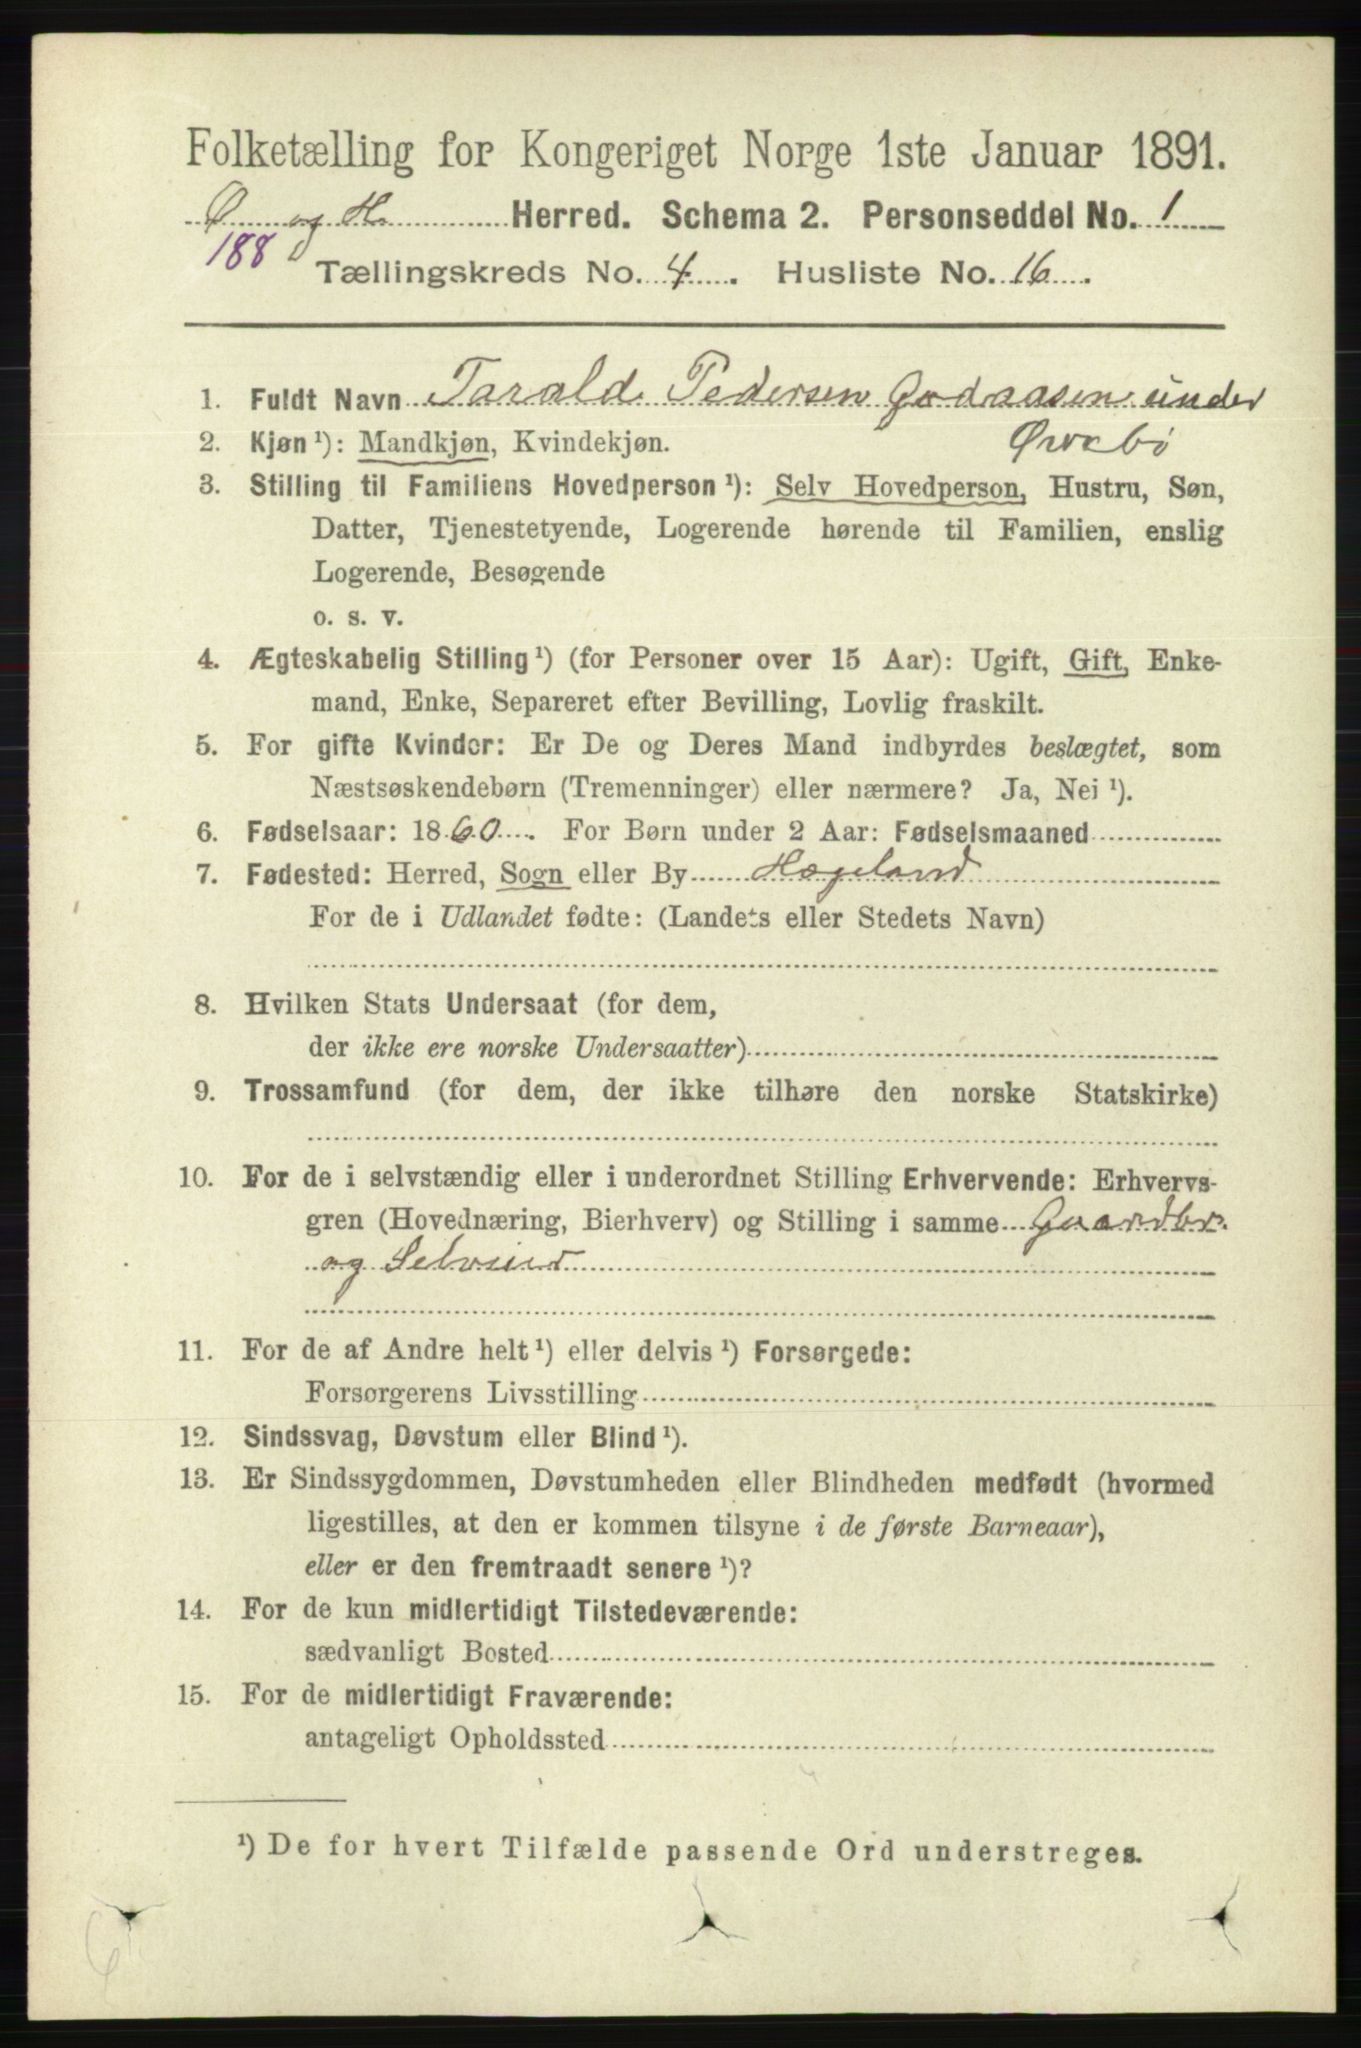 Folketælling for Kongeriget Norge 1ste Januar 1891.
Ø og H. Herred. Schema 2. Personseddel No. 1
188
Tællingskreds No. 4. Husliste No. 16.
1. Fuldt Navn Tarald Pedersen Godaasen under
Øvrebø
2. Kjøn ¹): Mandkjøn, Kvindekjøn.
3. Stilling til Familiens Hovedperson ¹): Selv Hovedperson, Hustru, Søn,
Datter, Tjenestetyende, Logerende hørende til Familien, enslig
Logerende, Besøgende
o. s. v.
4. Ægteskabelig Stilling ¹) (for Personer over 15 Aar): Ugift, Gift, Enke-
mand, Enke, Separeret efter Bevilling, Lovlig fraskilt.
5. For gifte Kvinder: Er De og Deres Mand indbyrdes beslægtet, som
Næstsøskendebørn (Tremenninger) eller nærmere? Ja, Nei ¹).
6. Fødselsaar: 1860. For Børn under 2 Aar: Fødselsmaaned
7. Fødested: Herred, Sogn eller By Hægeland
For de i Udlandet fødte: (Landets eller Stedets Navn)
8. Hvilken Stats Undersaat (for dem,
der ikke ere norske Undersaatter)
9. Trossamfund (for dem, der ikke tilhøre den norske Statskirke)
10. For de i selvstændig eller i underordnet Stilling Erhvervende: Erhvervs-
gren (Hovednæring, Bierhverv) og Stilling i samme Gaardbr.
og Selveier
11. For de af Andre helt ¹) eller delvis ¹) Forsørgede:
Forsørgerens Livsstilling
12. Sindssvag, Døvstum eller Blind ¹).
13. Er Sindssygdommen, Døvstumheden eller Blindheden medfødt (hvormed
ligestilles, at den er kommen tilsyne i de første Barneaar),
eller er den fremtraadt senere ¹)?
14. For de kun midlertidigt Tilstedeværende:
sædvanligt Bosted
15. For de midlertidigt Fraværende:
antageligt Opholdssted
¹) De for hvert Tilfælde passende Ord understreges.